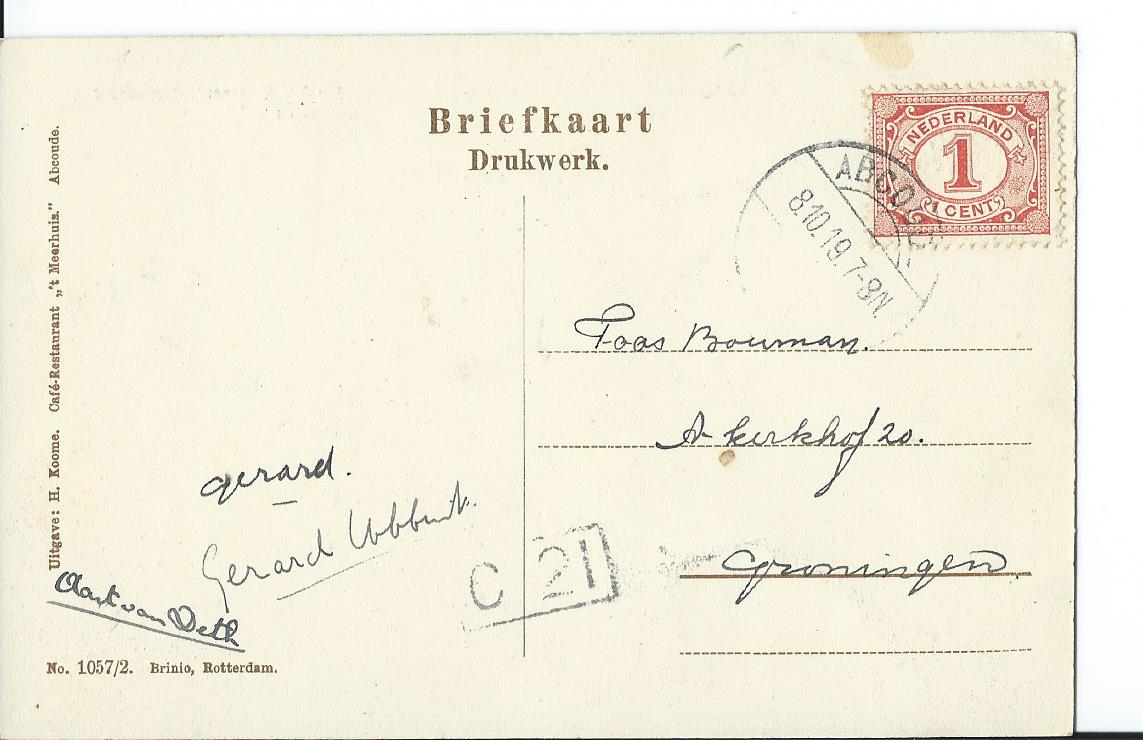 Briefkaart
Drukwerk.
NEDERLAND
1
1 CENT
ABCOUDE
8.10.19.7-8N
Uitgave: H. Koome. Café-Restaurant „'t Meerhuis." Abcoude.
Toos Bouman.
A-kerkhof 20.
Groningen
gerard.
Gerard
Aart van
C 21
No. 1057/2. Brinio, Rotterdam.